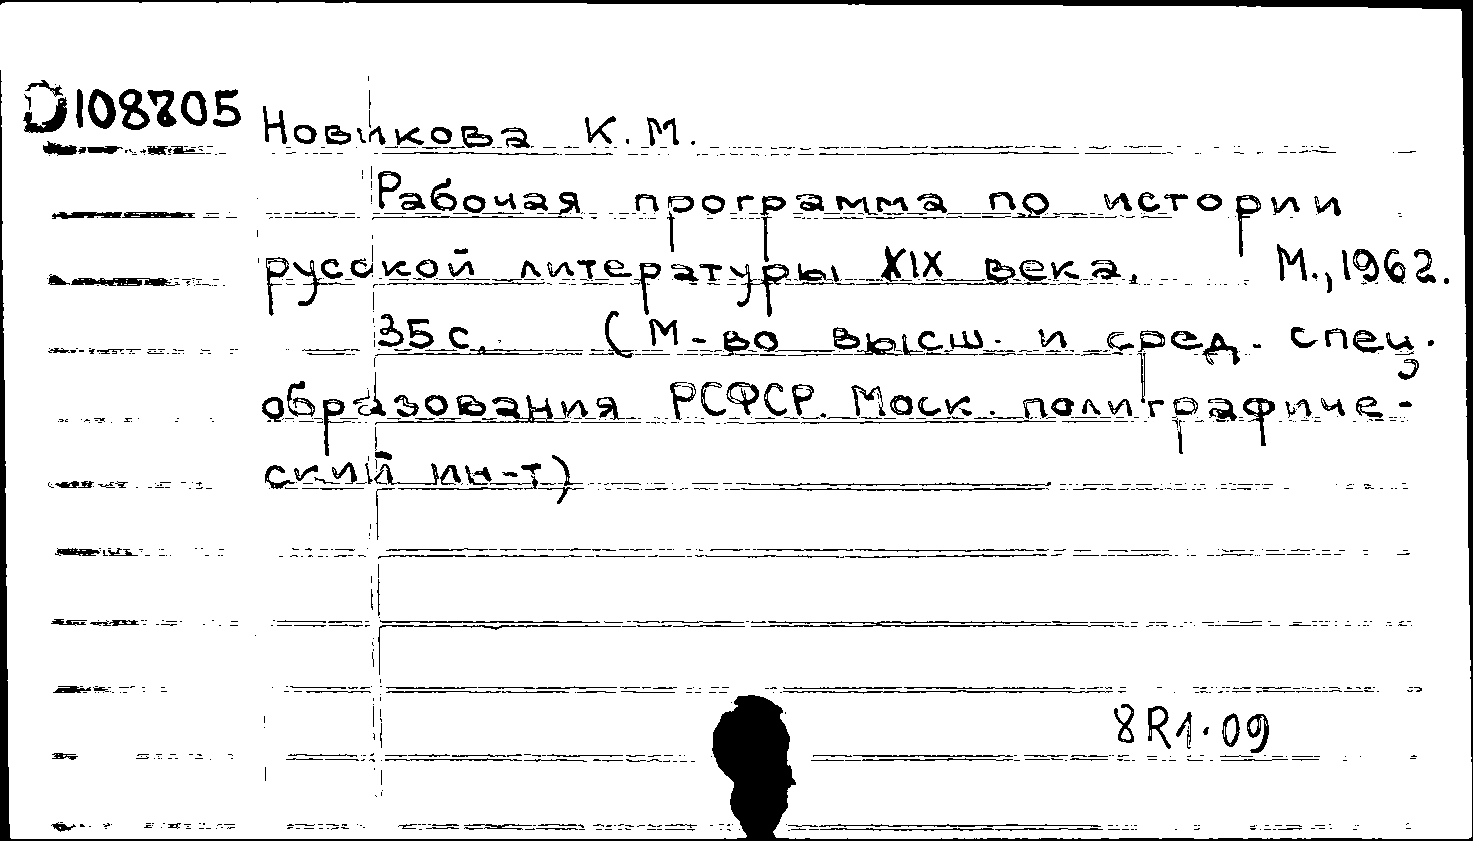 D108705
Новикова К.М.
Рабочая программа по истории
русской литературы XIX века. М., 1962.
35 с. (М-во высш. и сред. спец.
образования РСФСР. Моск. полиграфиче-
ский ин-т)
8R1.09